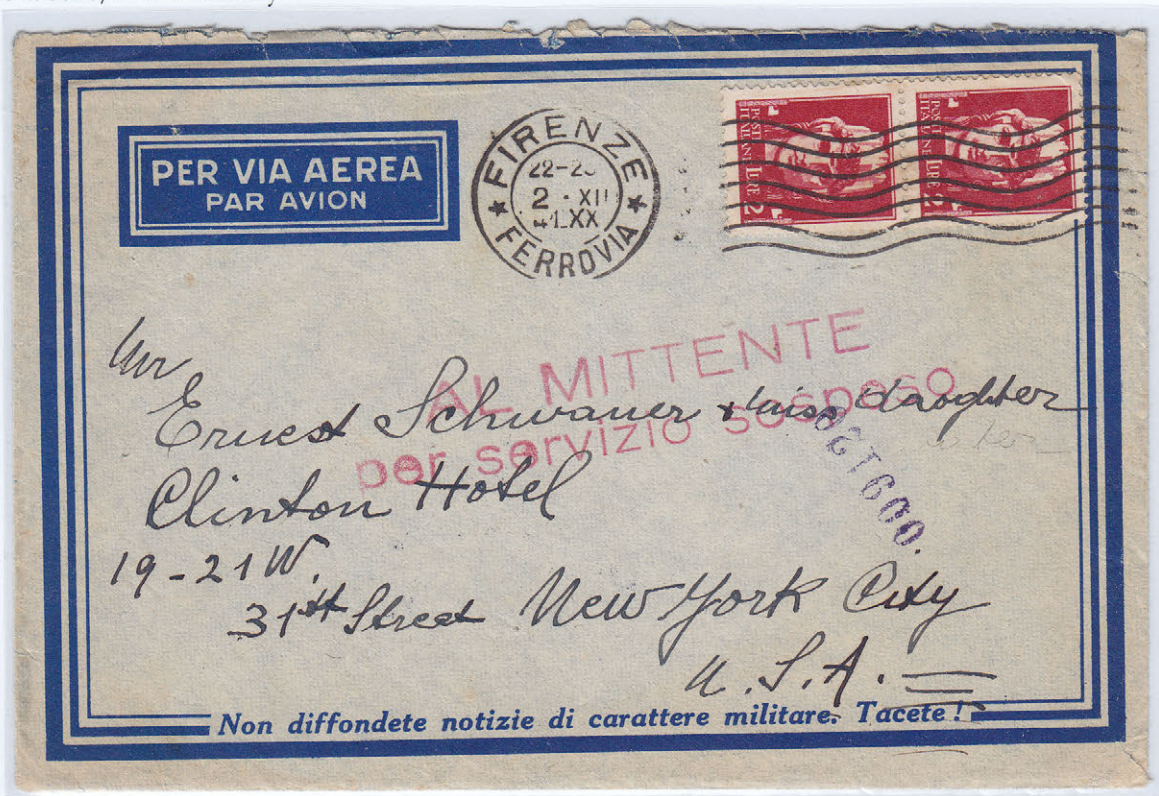 PER VIA AEREA
PAR AVION
FIRENZE
22-2
2 · XII
41.XX
FERROVIA
POSTE ITALIANE LIRE 2
POSTE ITALIANE LIRE 2
AL MITTENTE
per servizio sospeso
Mr
Ernest Schwauer & daughter
Clinton Hotel
19-21 W.
31st Street New York City
U.S.A.
Non diffondete notizie di carattere militare. Tacete!